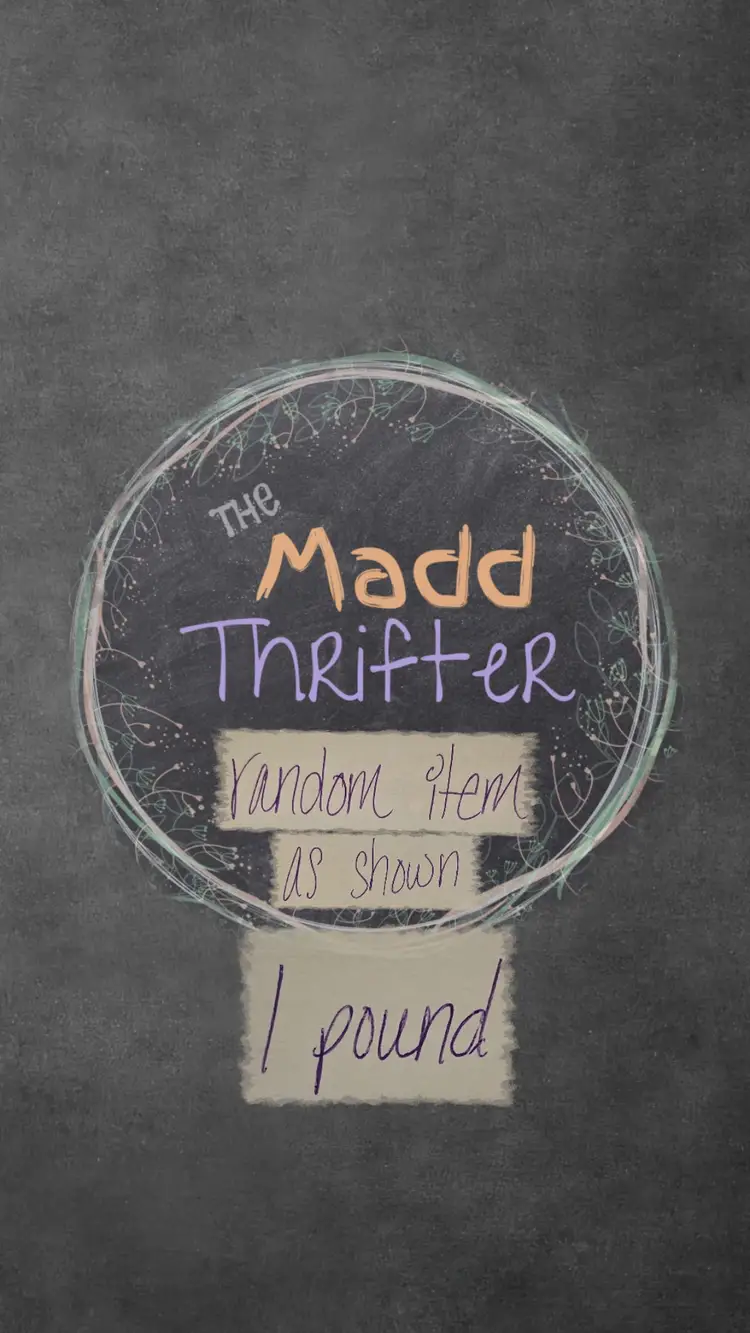 THE
Madd
Thrifter
random item
as shown
1 pound